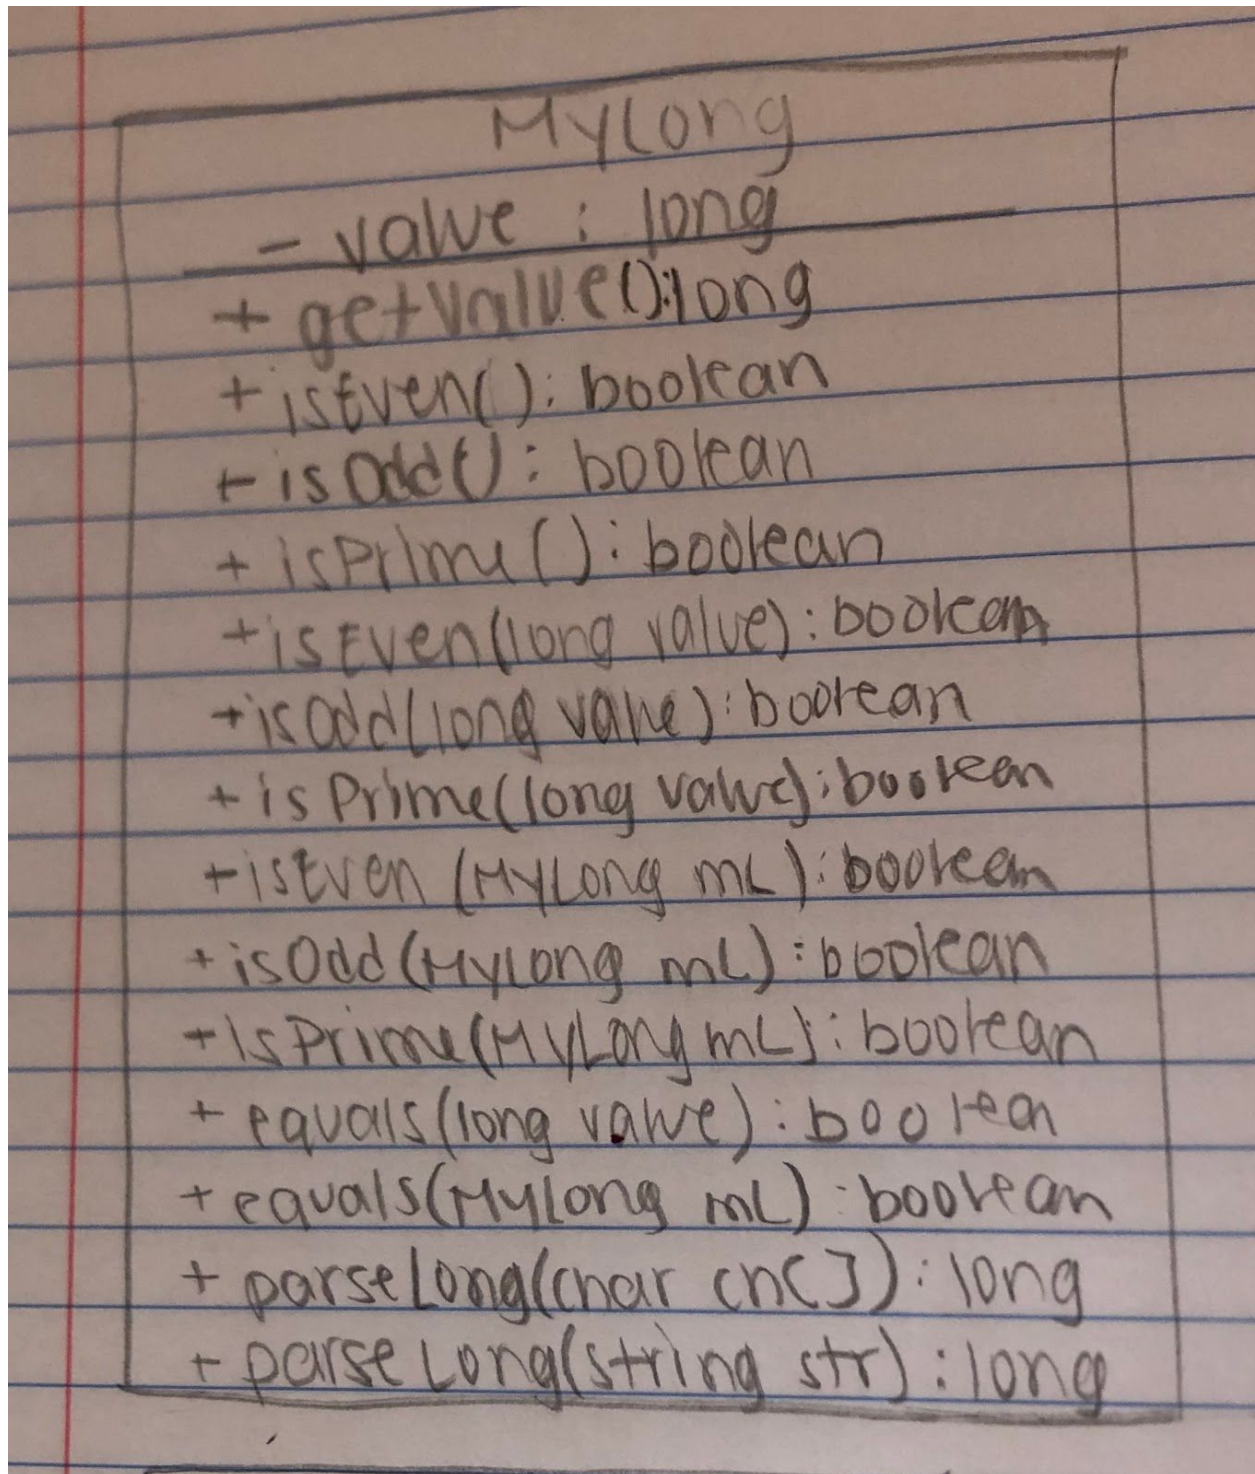 MyLong
- value : long
+ getValue():long
+ isEven(): boolean
+ isOdd(): boolean
+ isPrime(): boolean
+ isEven(long value): boolean
+ isOdd(long value): boolean
+ isPrime(long value): boolean
+ isEven (MyLong mL): boolean
+ isOdd (MyLong mL): boolean
+ isPrime(MyLong mL): boolean
+ equals(long value): boolean
+ equals(MyLong mL): boolean
+ parseLong(char ch[]): long
+ parseLong(string str): long